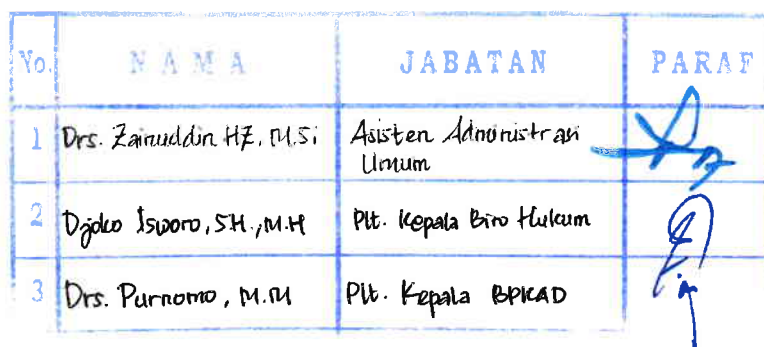 No. NAMA JABATAN PARAF
1 Drs. Zainuddin HZ, M.Si Asisten Administrasi
Umum
2 Djoko Isworo, SH., M.H Plt. Kepala Biro Hukum
3 Drs. Purnomo, M.M Plt. Kepala BPKAD